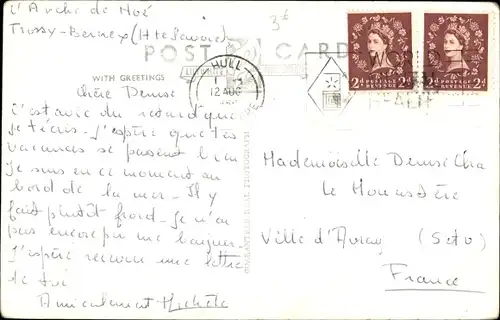 L'Arche de Noé
Trossy-Bernex (Hte Savoie)
3d
POST CARD
WITH GREETINGS
HULL
12 AUG
WORLD
HEALTH
2d POSTAGE REVENUE 2d
2d POSTAGE REVENUE 2d
Chère Denise
C'est avec du retard que
je t'écris. J'espère que tes
vacances se passent bien
Je suis en ce moment au
bord de la mer. Il y
fait plutôt froid. Je n'ai
pas encore pu me baigner.
J'espère recevoir une lettre
de toi
Amicalement Michèle
Mademoiselle Denise
Le Monastère
Ville d'Avray (S et O)
France